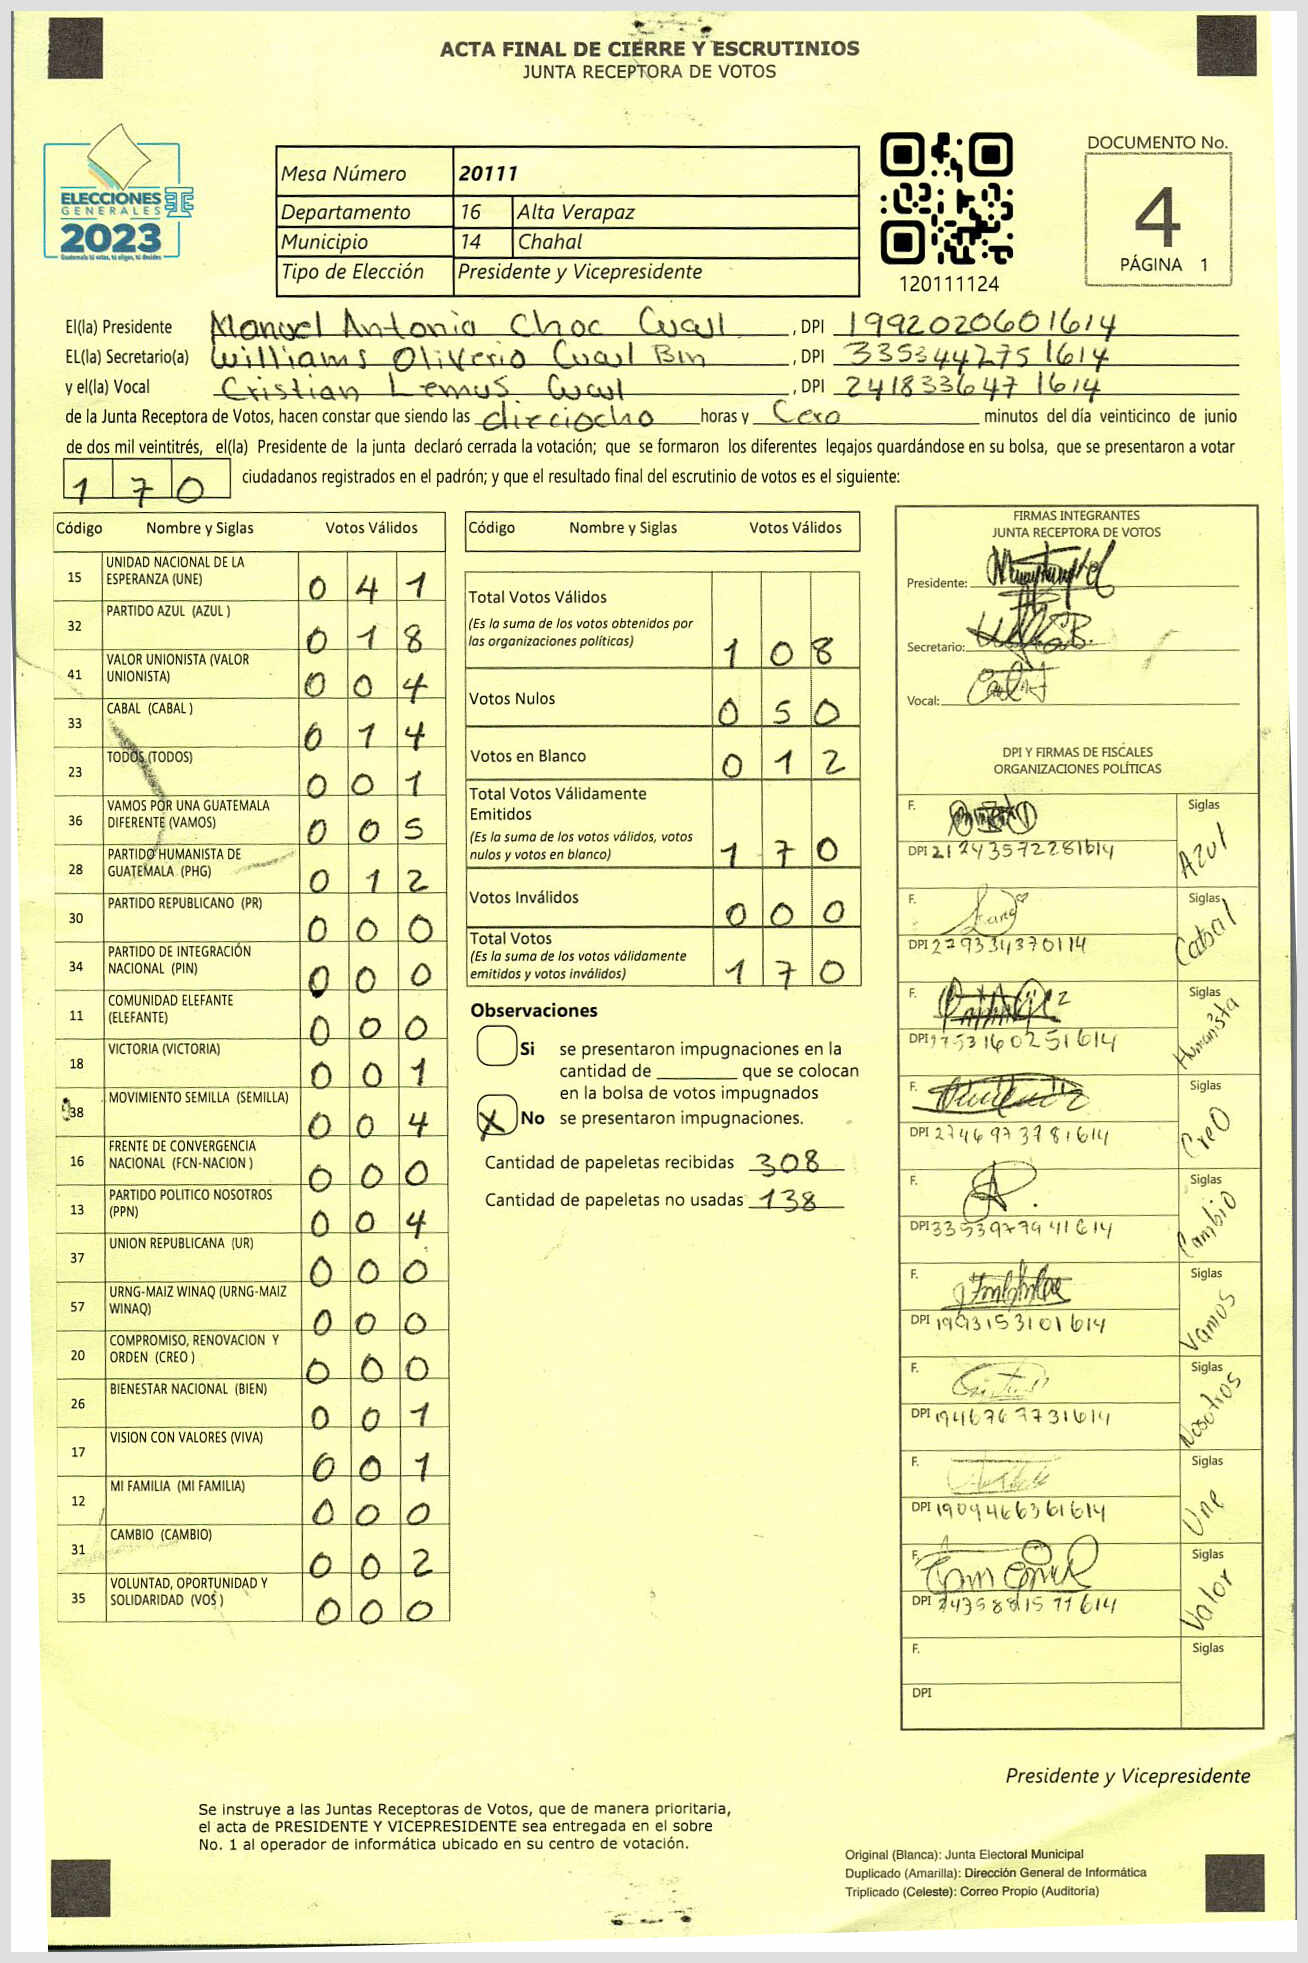 ACTA FINAL DE CIERRE Y ESCRUTINIOS
JUNTA RECEPTORA DE VOTOS
ELECCIONES
GENERALES
2023
Guatemala tú votas, tú eliges, tú decides
Mesa Número 20111
Departamento 16 Alta Verapaz
Municipio 14 Chahal
Tipo de Elección Presidente y Vicepresidente
120111124
DOCUMENTO No.
4
PÁGINA 1
El(la) Presidente Manuel Antonio Choc Cucul , DPI 1992020601614
EL(la) Secretario(a) Williams Oliverio Cucul Bin , DPI 3353442751614
y el(la) Vocal Cristian Lemus Cucul , DPI 2418336471614
de la Junta Receptora de Votos, hacen constar que siendo las dieciocho horas y Cero minutos del día veinticinco de junio
de dos mil veintitrés, el(la) Presidente de la junta declaró cerrada la votación; que se formaron los diferentes legajos guardándose en su bolsa, que se presentaron a votar
170 ciudadanos registrados en el padrón; y que el resultado final del escrutinio de votos es el siguiente:
Código Nombre y Siglas Votos Válidos
15 UNIDAD NACIONAL DE LA ESPERANZA (UNE) 0 4 1
32 PARTIDO AZUL (AZUL ) 0 1 8
41 VALOR UNIONISTA (VALOR UNIONISTA) 0 0 4
33 CABAL (CABAL ) 0 1 4
23 TODOS (TODOS) 0 0 1
36 VAMOS POR UNA GUATEMALA DIFERENTE (VAMOS) 0 0 5
28 PARTIDO HUMANISTA DE GUATEMALA (PHG) 0 1 2
30 PARTIDO REPUBLICANO (PR) 0 0 0
34 PARTIDO DE INTEGRACIÓN NACIONAL (PIN) 0 0 0
11 COMUNIDAD ELEFANTE (ELEFANTE) 0 0 0
18 VICTORIA (VICTORIA) 0 0 1
38 MOVIMIENTO SEMILLA (SEMILLA) 0 0 4
16 FRENTE DE CONVERGENCIA NACIONAL (FCN-NACION ) 0 0 0
13 PARTIDO POLITICO NOSOTROS (PPN) 0 0 4
37 UNION REPUBLICANA (UR) 0 0 0
57 URNG-MAIZ WINAQ (URNG-MAIZ WINAQ) 0 0 0
20 COMPROMISO, RENOVACION Y ORDEN (CREO ) 0 0 0
26 BIENESTAR NACIONAL (BIEN) 0 0 1
17 VISION CON VALORES (VIVA) 0 0 1
12 MI FAMILIA (MI FAMILIA) 0 0 0
31 CAMBIO (CAMBIO) 0 0 2
35 VOLUNTAD, OPORTUNIDAD Y SOLIDARIDAD (VOS ) 0 0 0
Código Nombre y Siglas Votos Válidos
Total Votos Válidos
(Es la suma de los votos obtenidos por
las organizaciones políticas) 1 0 8
Votos Nulos 0 5 0
Votos en Blanco 0 1 2
Total Votos Válidamente
Emitidos
(Es la suma de los votos válidos, votos
nulos y votos en blanco) 1 7 0
Votos Inválidos 0 0 0
Total Votos
(Es la suma de los votos válidamente
emitidos y votos inválidos) 1 7 0
Observaciones
Si se presentaron impugnaciones en la
cantidad de ________ que se colocan
en la bolsa de votos impugnados
X No se presentaron impugnaciones.
Cantidad de papeletas recibidas 308
Cantidad de papeletas no usadas 138
FIRMAS INTEGRANTES
JUNTA RECEPTORA DE VOTOS
Presidente:
Secretario:
Vocal:
DPI Y FIRMAS DE FISCALES
ORGANIZACIONES POLÍTICAS
F. Siglas Azul
DPI 21243572281614
F. Siglas Cabal
DPI 229334370114
F. Siglas Humanista
DPI 1753160251614
F. Siglas CreO
DPI 2746973781614
F. Siglas Cambio
DPI 3353977941614
F. Siglas Vamos
DPI 1993153101614
F. Siglas Nosotros
DPI 1946767731614
F. Siglas Une
DPI 1909466361614
F. Siglas Valor
DPI
F. Siglas
DPI
Presidente y Vicepresidente
Se instruye a las Juntas Receptoras de Votos, que de manera prioritaria,
el acta de PRESIDENTE Y VICEPRESIDENTE sea entregada en el sobre
No. 1 al operador de informática ubicado en su centro de votación.
Original (Blanca): Junta Electoral Municipal
Duplicado (Amarilla): Dirección General de Informática
Triplicado (Celeste): Correo Propio (Auditoría)